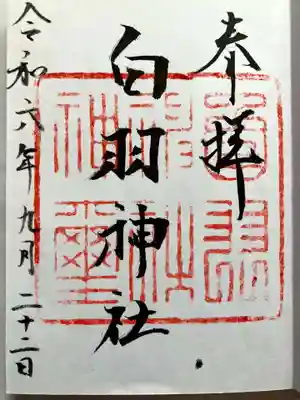 奉拝
白羽神社
令和六年九月二十二日